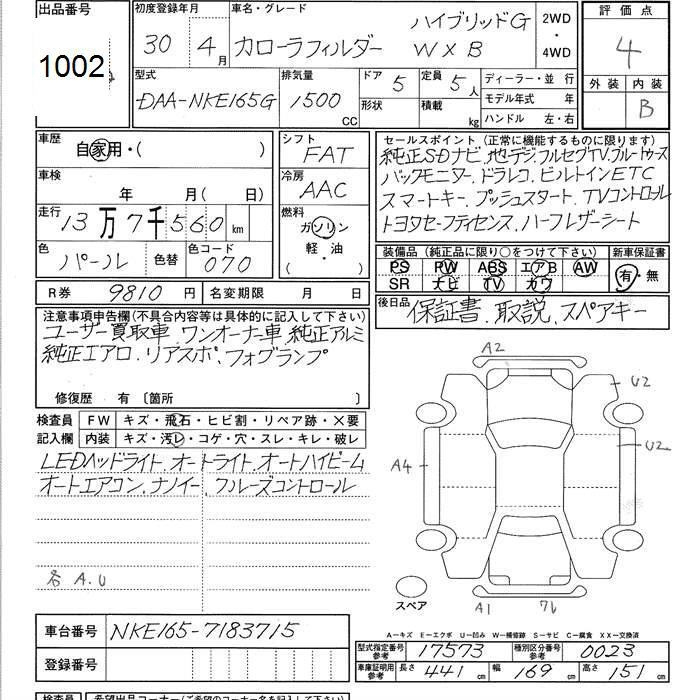 出品番号 初度登録年月 車名・グレード 評価点
1002 30年 4月 カローラフィルダー ハイブリッドG W×B 2WD・4WD 4
型式 排気量 ドア 5 定員 5人 ディーラー・並 行 外装 内装
DAA-NKE165G 1500 CC 形状 積載 kg モデル年式 年 B
ハンドル 左・右
車歴 自家用・( ) シフト FAT セールスポイント (正常に機能するものに限ります)
純正SDナビ.地デジ.フルセグTV.ブルートゥース
車検 年 月( 日) 冷房 AAC バックモニター.ドラレコ.ビルトインETC
スマートキー.プッシュスタート.TVコントロール
走行 13万7千560km 燃料 ガソリン 軽・油 ( ) トヨタセーフティセンス.ハーフレザーシート
色 パール 色替 色コード 070 装備品 (純正品に限り○をつけて下さい) 新車保証書
PS PW ABS エアB AW 有・無
SR ナビ TV カワ
R券 9810円 名変期限 月 日 後日品 保証書.取説.スペアキー
注意事項申告欄(不具合内容等は具体的に記入して下さい)
ユーザー買取車.ワンオーナー車.純正アルミ
純正エアロ.リアスポ.フォグランプ
修復歴 有 〔箇所 〕
検査員 FW キズ・飛石・ヒビ割・リペア跡・×要
記入欄 内装 キズ・汚レ・コゲ・穴・スレ・キレ・破レ
LEDヘッドライト.オートライト.オートハイビーム
オートエアコン.ナノイー.クルーズコントロール
各 A.U
A2
U2
U2
A4
A1
スペア
A-キズ E-エクボ U-凹み W-補修跡 S-サビ C-腐食 XX-交換済
車台番号 NKE165-7183715
型式指定番号 参考 17573 種別区分番号 参考 0023
登録番号
車庫証明用 参考 長さ 441cm 幅 169cm 高さ 151cm
検査員 希望出品コーナー(ご希望のコーナー名を記入下さい)